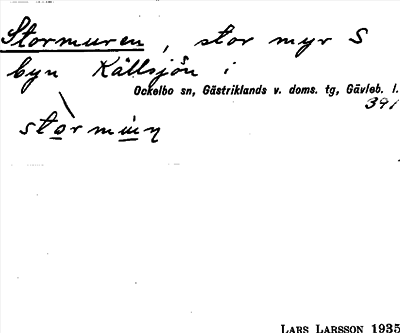 Stormuren, stor myr S
byn Källsjön i
Ockelbo sn, Gästriklands v. doms. tg, Gävleb. l.
391
LARS LARSSON 1935